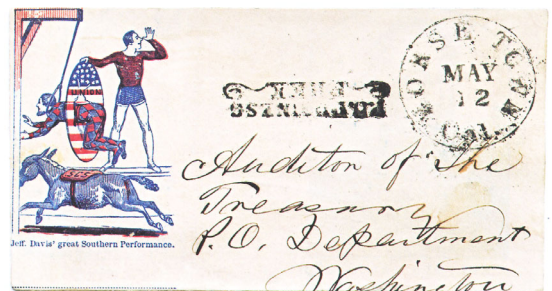 UNION
Jeff. Davis' great Southern Performance.
FREE
HORSE TOWN
MAY
12
Cal.
Auditor of the
Treasury
P.O. Department
Washington